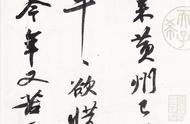 来黄州已
年〻欲惜
今年又苦